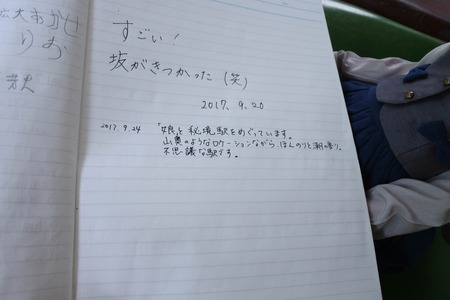 すごい!
坂がきつかった(笑)
2017. 9. 20
2017. 9. 24 「娘と秘境駅をめぐっています。
山奥のようなロケーションながら、ほんのりと潮の香り。
不思議な駅です。